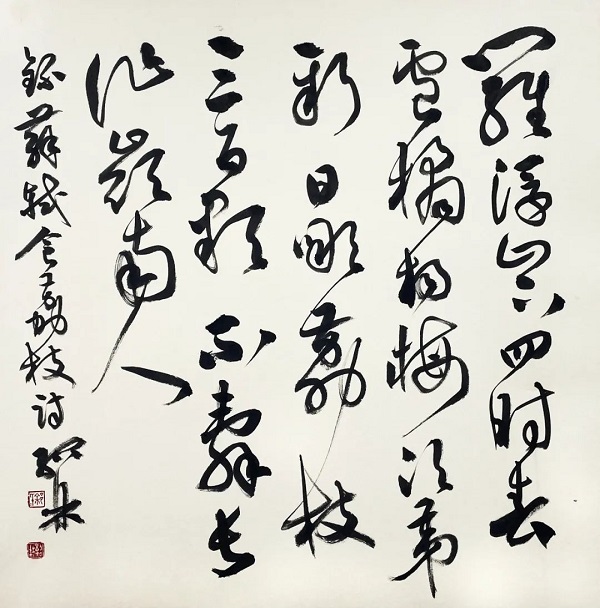 羅浮山下四时春
盧橘楊梅次第
新日啖荔枝
三百顆不辭長
作嶺南人
錄蘇軾食荔枝詩